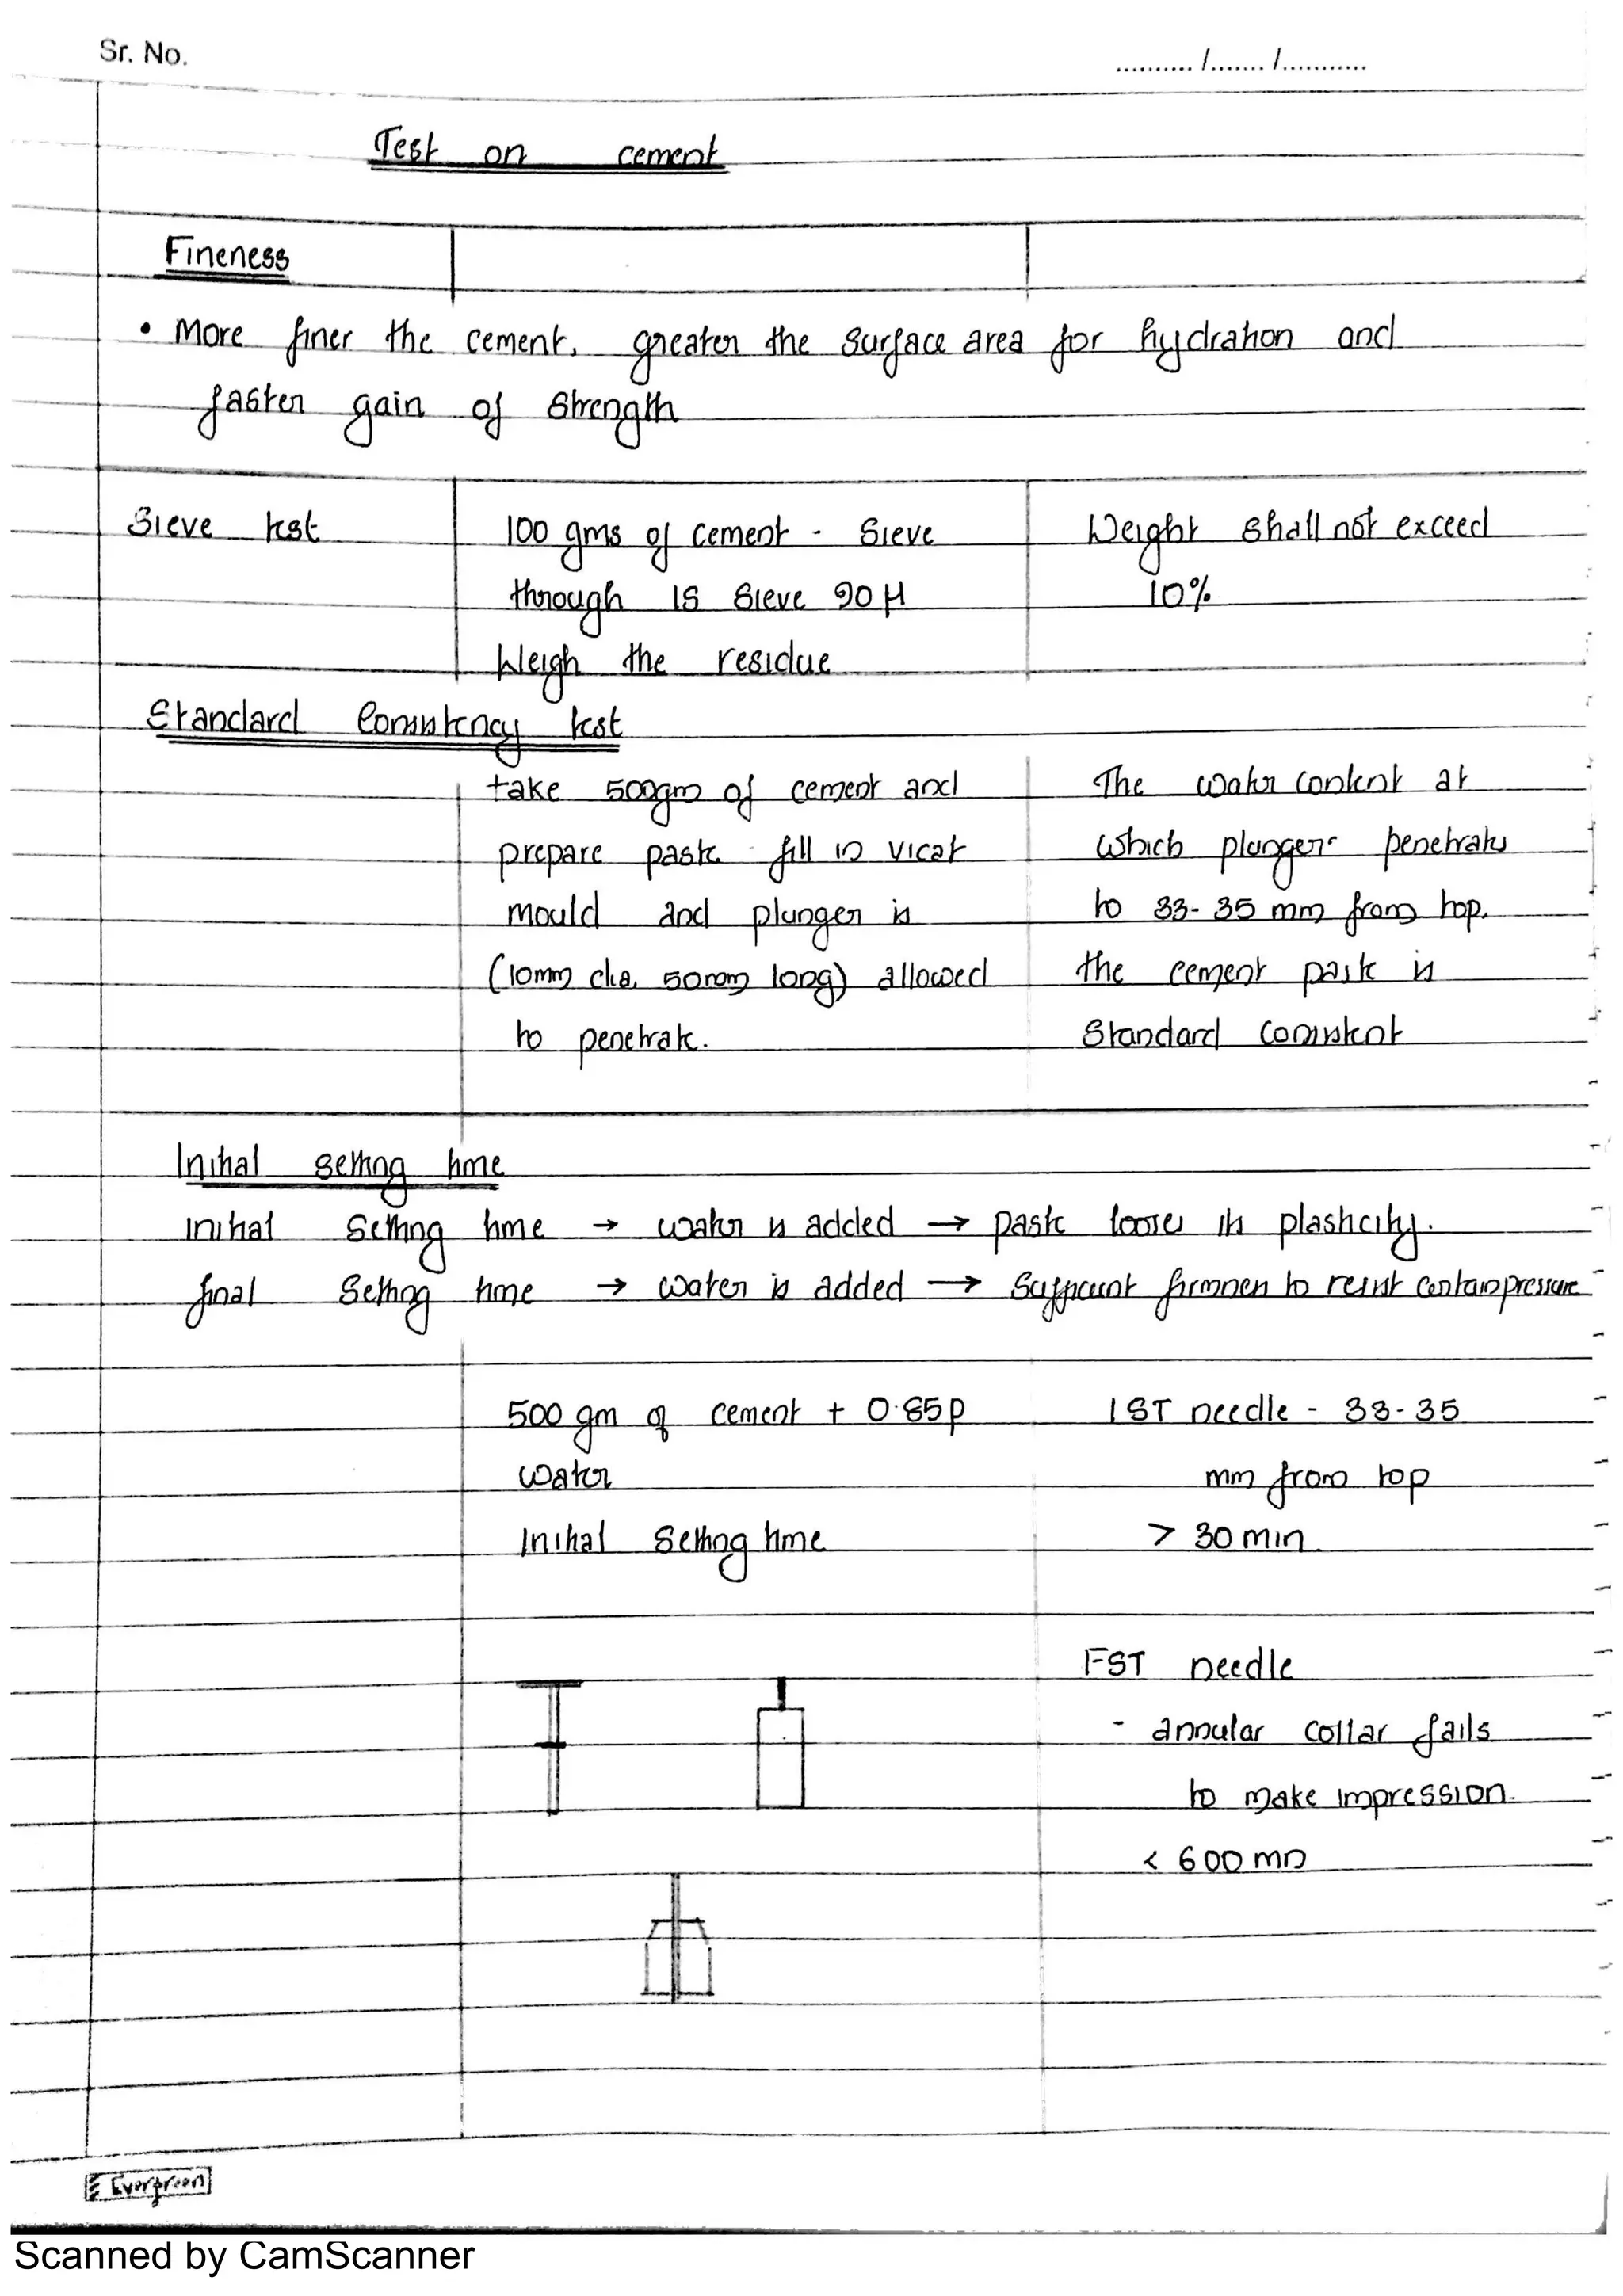 Sr. No.
.......... /....... /...........
Test on cement
Fineness
• More finer the cement, greater the surface area for hydration and
faster gain of strength
Sieve test
100 gms of cement - Sieve
through IS Sieve 90 μ
Weigh the residue
Weight shall not exceed
10%
Standard Consistency test
take 500gm of cement and
prepare paste fill in vicat
mould and plunger is
(10mm dia, 50mm long) allowed
to penetrate.
The water content at
which plunger penetrates
to 33-35 mm from top.
the cement paste is
Standard consistent
Initial setting time
initial setting time → water is added → paste looses its plasticity.
final setting time → water is added → sufficient firmnen to resist certain pressure
500 gm of cement + 0.85p
water
Initial setting time
IST needle - 33-35
mm from top
> 30 min.
FST needle
- annular collar fails
to make impression.
< 600 mn
Evergreen
Scanned by CamScanner